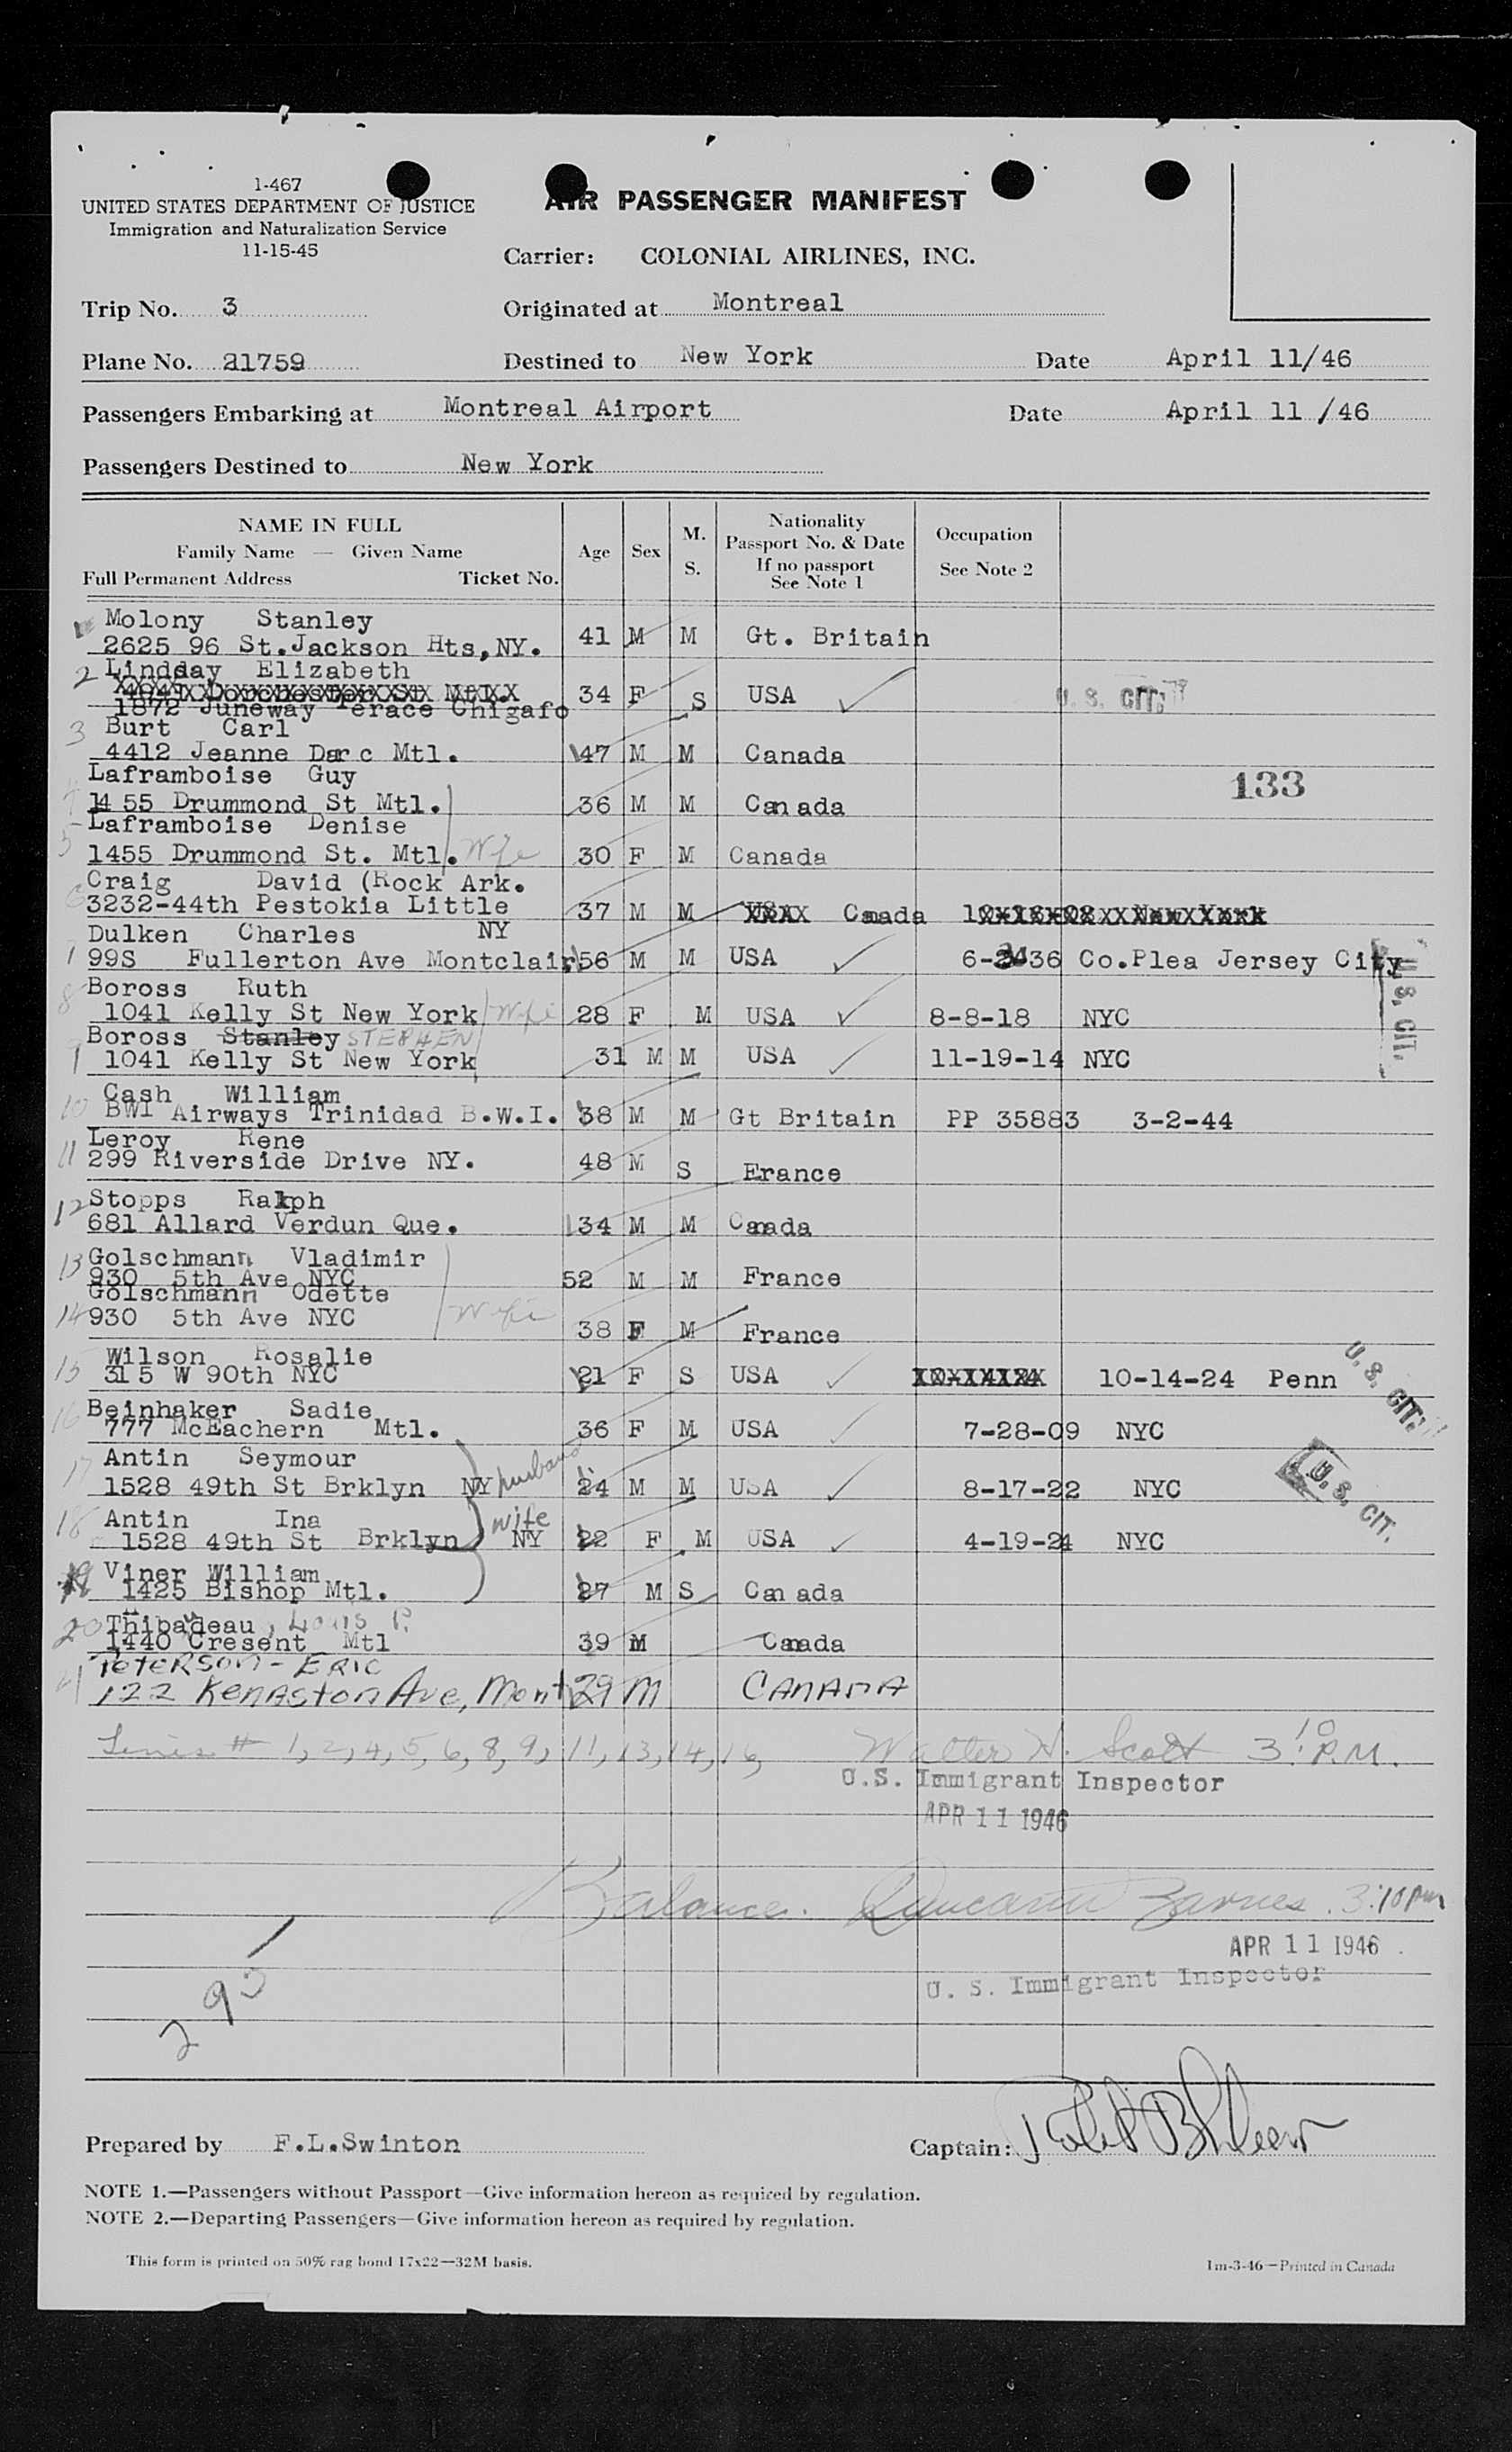 1-467
UNITED STATES DEPARTMENT OF JUSTICE
Immigration and Naturalization Service
11-15-45
AIR PASSENGER MANIFEST
Carrier: COLONIAL AIRLINES, INC.
Trip No. 3 Originated at Montreal
Plane No. 21759 Destined to New York Date April 11/46
Passengers Embarking at Montreal Airport Date April 11 /46
Passengers Destined to New York
NAME IN FULL
Family Name — Given Name
Full Permanent Address Ticket No.
Age Sex M. S.
Nationality
Passport No. & Date
If no passport
See Note 1
Occupation
See Note 2
Molony Stanley
2625 96 St.Jackson Hts,NY. 41 M M Gt. Britain
2 Lindsay Elizabeth
1872 Juneway Terace Chigafo 34 F S USA U. S. CIT.
3 Burt Carl
4412 Jeanne Darc Mtl. 47 M M Canada
133
Laframboise Guy
1455 Drummond St Mtl. 36 M M Canada
5 Laframboise Denise
1455 Drummond St. Mtl. Wife 30 F M Canada
6 Craig David (Rock Ark.
3232-44th Pestokia Little 37 M M Canada
7 Dulken Charles NY
99S Fullerton Ave Montclair 56 M M USA 6-36 Co.Plea Jersey City
8 Boross Ruth
1041 Kelly St New York Wife 28 F M USA 8-8-18 NYC
U. S. CIT.
Boross Stanley STEPHEN
1041 Kelly St New York 31 M M USA 11-19-14 NYC
10 Cash William
BWI Airways Trinidad B.W.I. 38 M M Gt Britain PP 35883 3-2-44
11 Leroy Rene
299 Riverside Drive NY. 48 M S France
12 Stopps Ralph
681 Allard Verdun Que. 34 M M Canada
13 Golschmann Vladimir
930 5th Ave NYC 52 M M France
Golschmann Odette
14 930 5th Ave NYC Wife 38 F M France
15 Wilson Rosalie
315 W 90th NYC 21 F S USA 10-14-24 Penn U. S. CIT.
16 Beinhaker Sadie
777 McEachern Mtl. 36 F M USA 7-28-09 NYC
17 Antin Seymour
1528 49th St Brklyn NY husband 24 M M USA 8-17-22 NYC U. S. CIT.
18 Antin Ina
1528 49th St Brklyn NY wife 22 F M USA 4-19-24 NYC
19 Viner William
1425 Bishop Mtl. 27 M S Canada
20 Thibadeau, Louis P.
1440 Cresent Mtl 39 M Canada
21 PETERSON - ERIC
122 Kenaston Ave, Mont 29 M CANADA
Lines # 1, 2, 4, 5, 6, 8, 9, 11, 13, 14, 16, Walter H. Scott 3:10 P.M.
U.S. Immigrant Inspector
APR 11 1946
Balance. Barnes. 3:10 pm
APR 11 1946
U. S. Immigrant Inspector
295
Prepared by F.L.Swinton Captain:
NOTE 1.—Passengers without Passport—Give information hereon as required by regulation.
NOTE 2.—Departing Passengers—Give information hereon as required by regulation.
This form is printed on 50% rag bond 17x22—32M basis. 1m-3-46—Printed in Canada